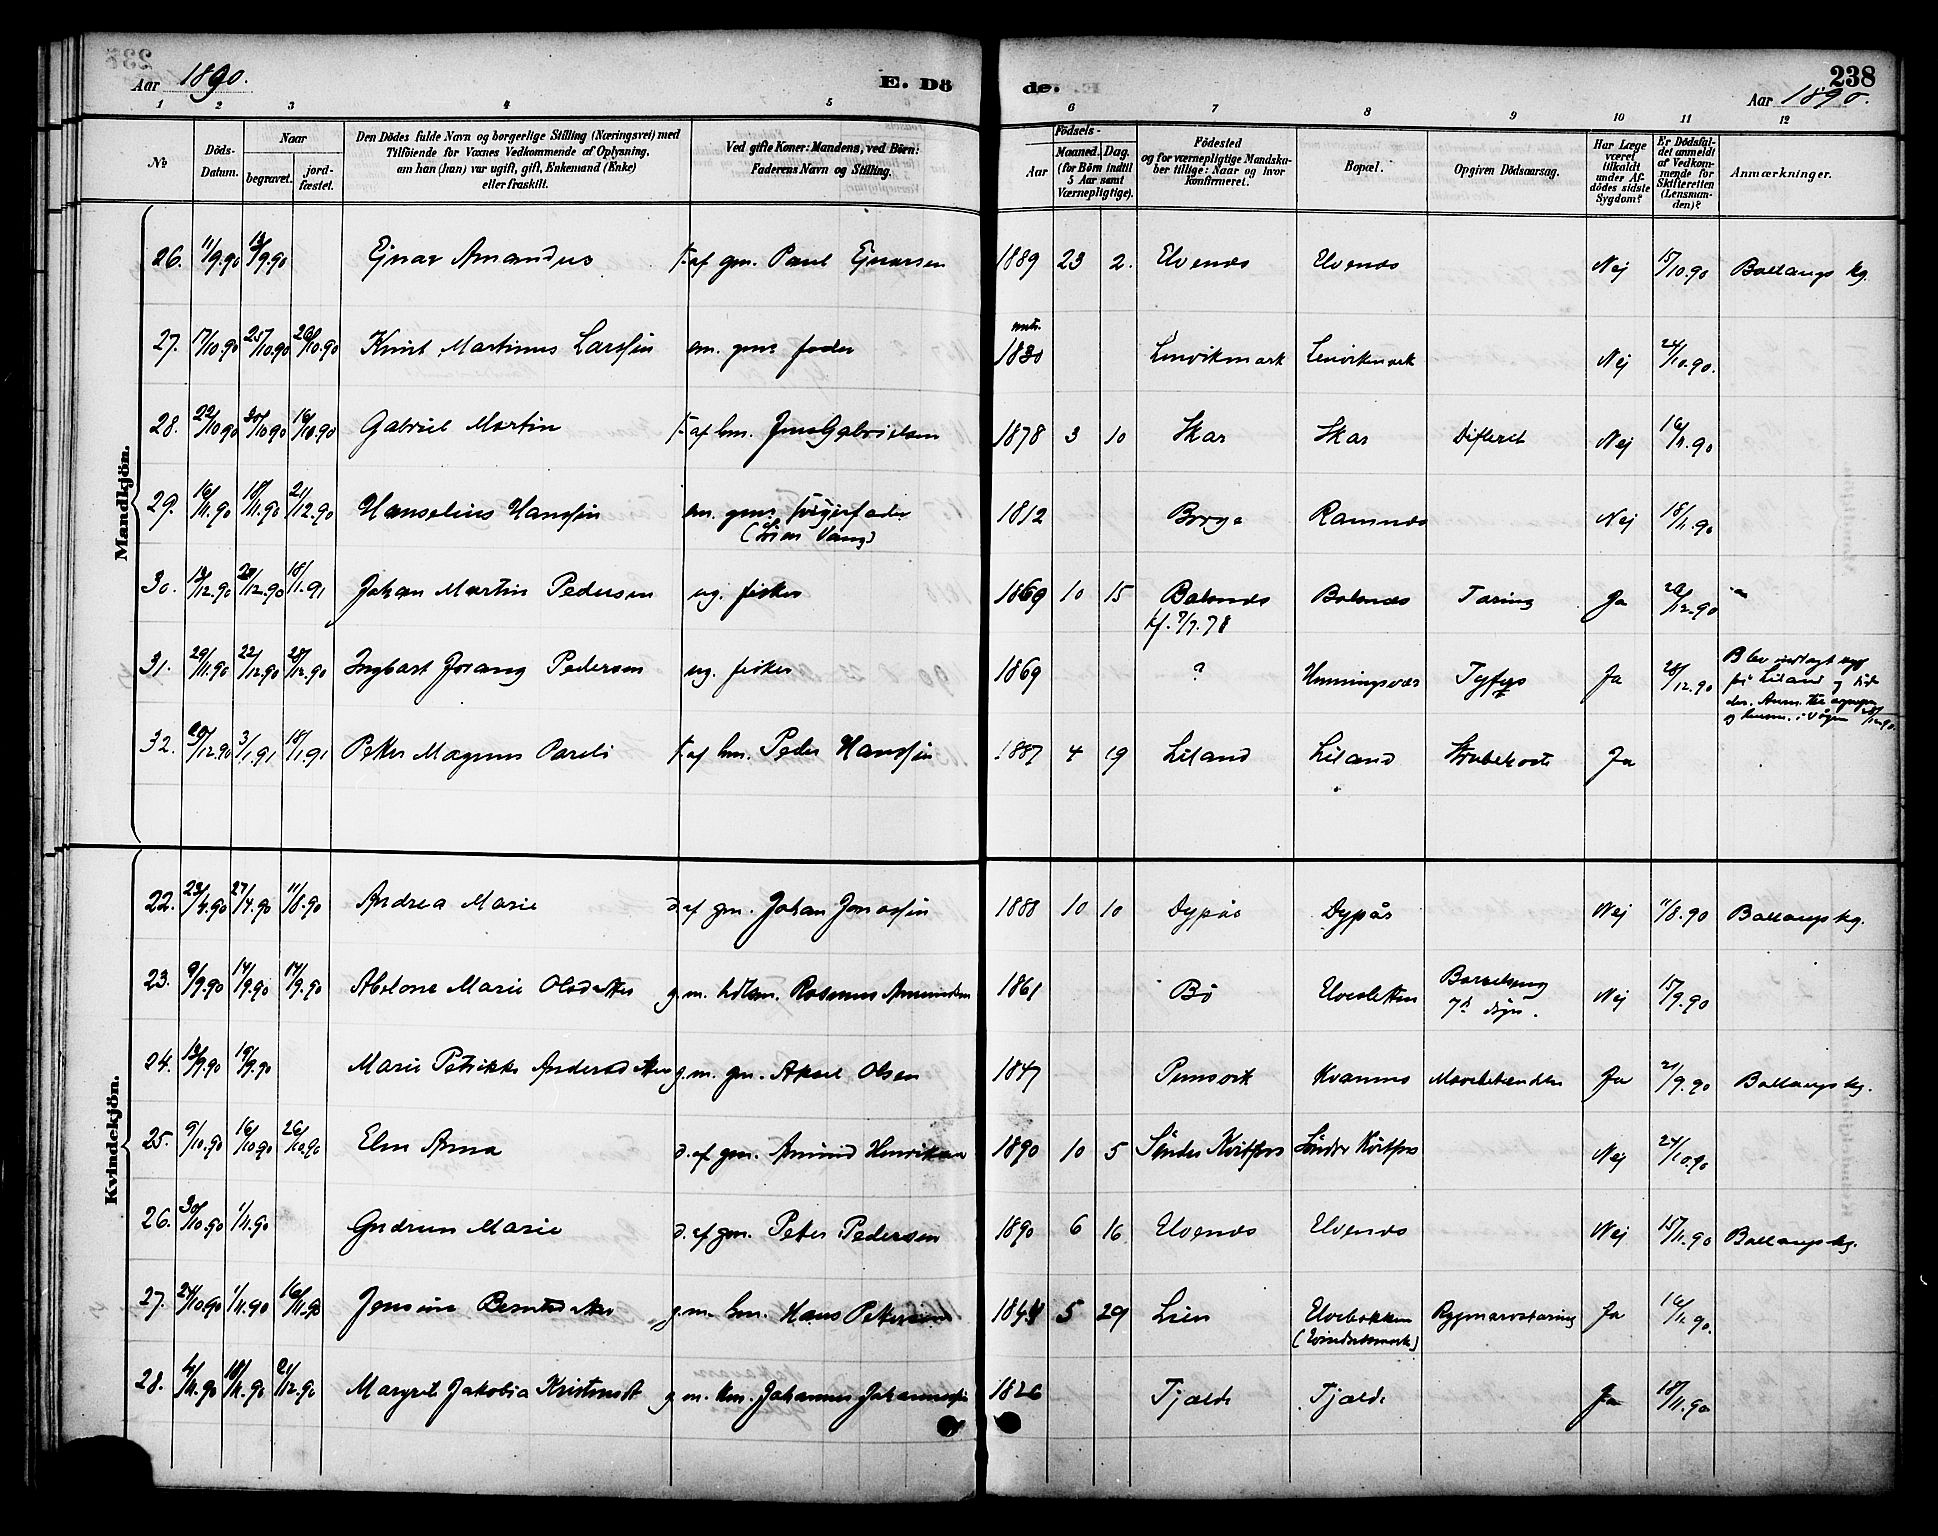 Aar 1890.
E. Dö
de.
238
Aar 1890.
1 2 3 4 5 6 7 8 9 10 11 12
No
Döds-
Datum.
Naar
begravet.
jord-
fæstet.
Den Dödes fulde Navn og borgerlige Stilling (Næringsvei) med
Tilföiende for Voxnes Vedkommende af Oplysning,
om han (hun) var ugift, gift, Enkemand (Enke)
eller fraskilt.
Ved gifte Koner: Mandens, ved Börn:
Faderens Navn og Stilling.
Födsels-
Aar
Maaned.
Dag.
(for Börn indtil
5 Aar samt
Værnepligtige).
Födested
og for værnepligtige Mandska-
ber tillige: Naar og hvor
Konfirmeret.
Bopæl.
Opgiven Dödsaarsag.
Har Læge
været
tilkaldt
under Af-
dödes sidste
Sygdom?
Er Dödsfal-
det anmeldt
af Vedkom-
mende for
Skifteretten
(Lensman-
den)?
Anmærkninger.
Mandkjön.
26. 11/9.90 13/9.90 Ejnar Amandus f. af gm. Paul Ejnarsen 1889 23 2. Elvenæs Elvenæs Nej 15/10.90 Ballangs kg.
27. 17/10.90 25/10.90 26/10.90 Knut Martinus Larssen em. gmr. foder 1830 Lenvikmark Lenvikmark Nej 24/10.90.
28. 22/10.90 30/10.90 16/11.90 Gabriel Martin f. af hm. Jens Gabrielsen 1878 3 10 Skar Skar Difterit Nej 16/11.90
29. 16/11.90 18/11.90 21/12.90 Hanselius Hanssen em. gmr. 1812 Borge Ramnæs Nej 18/11.90
30. 13/12.90 20/12.90 18/1.91 Johan Martin Pedersen ug. fisker 1869 10 15 Balsnæs Balsnæs Tæring Ja 20/12.90
31. 29/11.90 22/12.90 28/12.90 Ingbart Jorang Pedersen ug. fisker 1869 ? Henningsvær Tyfus Ja 28/12.90
32. 20/12.90 3/1.91 18/1.91 Peter Magnus Pareli f. af hm. Peder Hanssen 1887 4 19 Liland Liland Strubehoste Ja
Kvindekjön.
22. 23/4.90 27/4.90 11/8.90 Andrea Marie d. af gm. Johan Jonassen 1888 10 10 Dypås Dypås Nej 11/8.90 Ballangs kg.
23. 9/9.90 14/9.90 14/9.90 Abelone Marie Olsdatter g. m. Rasmus Amundsen 1861 Bö Elvesletten Barselseng Nej 15/9.90
24. 13/9.90 19/9.90 Marie Petrikke Andersdatter g. m. gm. Aksel Olsen 1847 Kvannes Ja 21/9.90 Ballangs kg.
25. 9/10.90 16/10.90 26/10.90 Elen Anna d. af gm. Amund Henriksen 1890 10 5 Söndre Kvitfors Söndre Kvitfors Nej 24/10.90
26. 30/10.90 1/11.90 Gudrun Marie d. af gm. Peter Pedersen 1890 6 16 Elvenæs Elvenæs Nej 15/11.90 Ballangs kg.
27. 24/10.90 1/11.90 16/11.90 Jensine Berntsdatter g. m. hm. Hans Petersen 5 29 Lien Elvebakken Rygmarvstæring Ja 16/11.90.
28. 4/11.90 18/11.90 21/12.90 Margrit Jakobia Kristensdt g. m. hm. Johannes Johannessen 1826 Tjælde Tjælde Ja 18/11.90